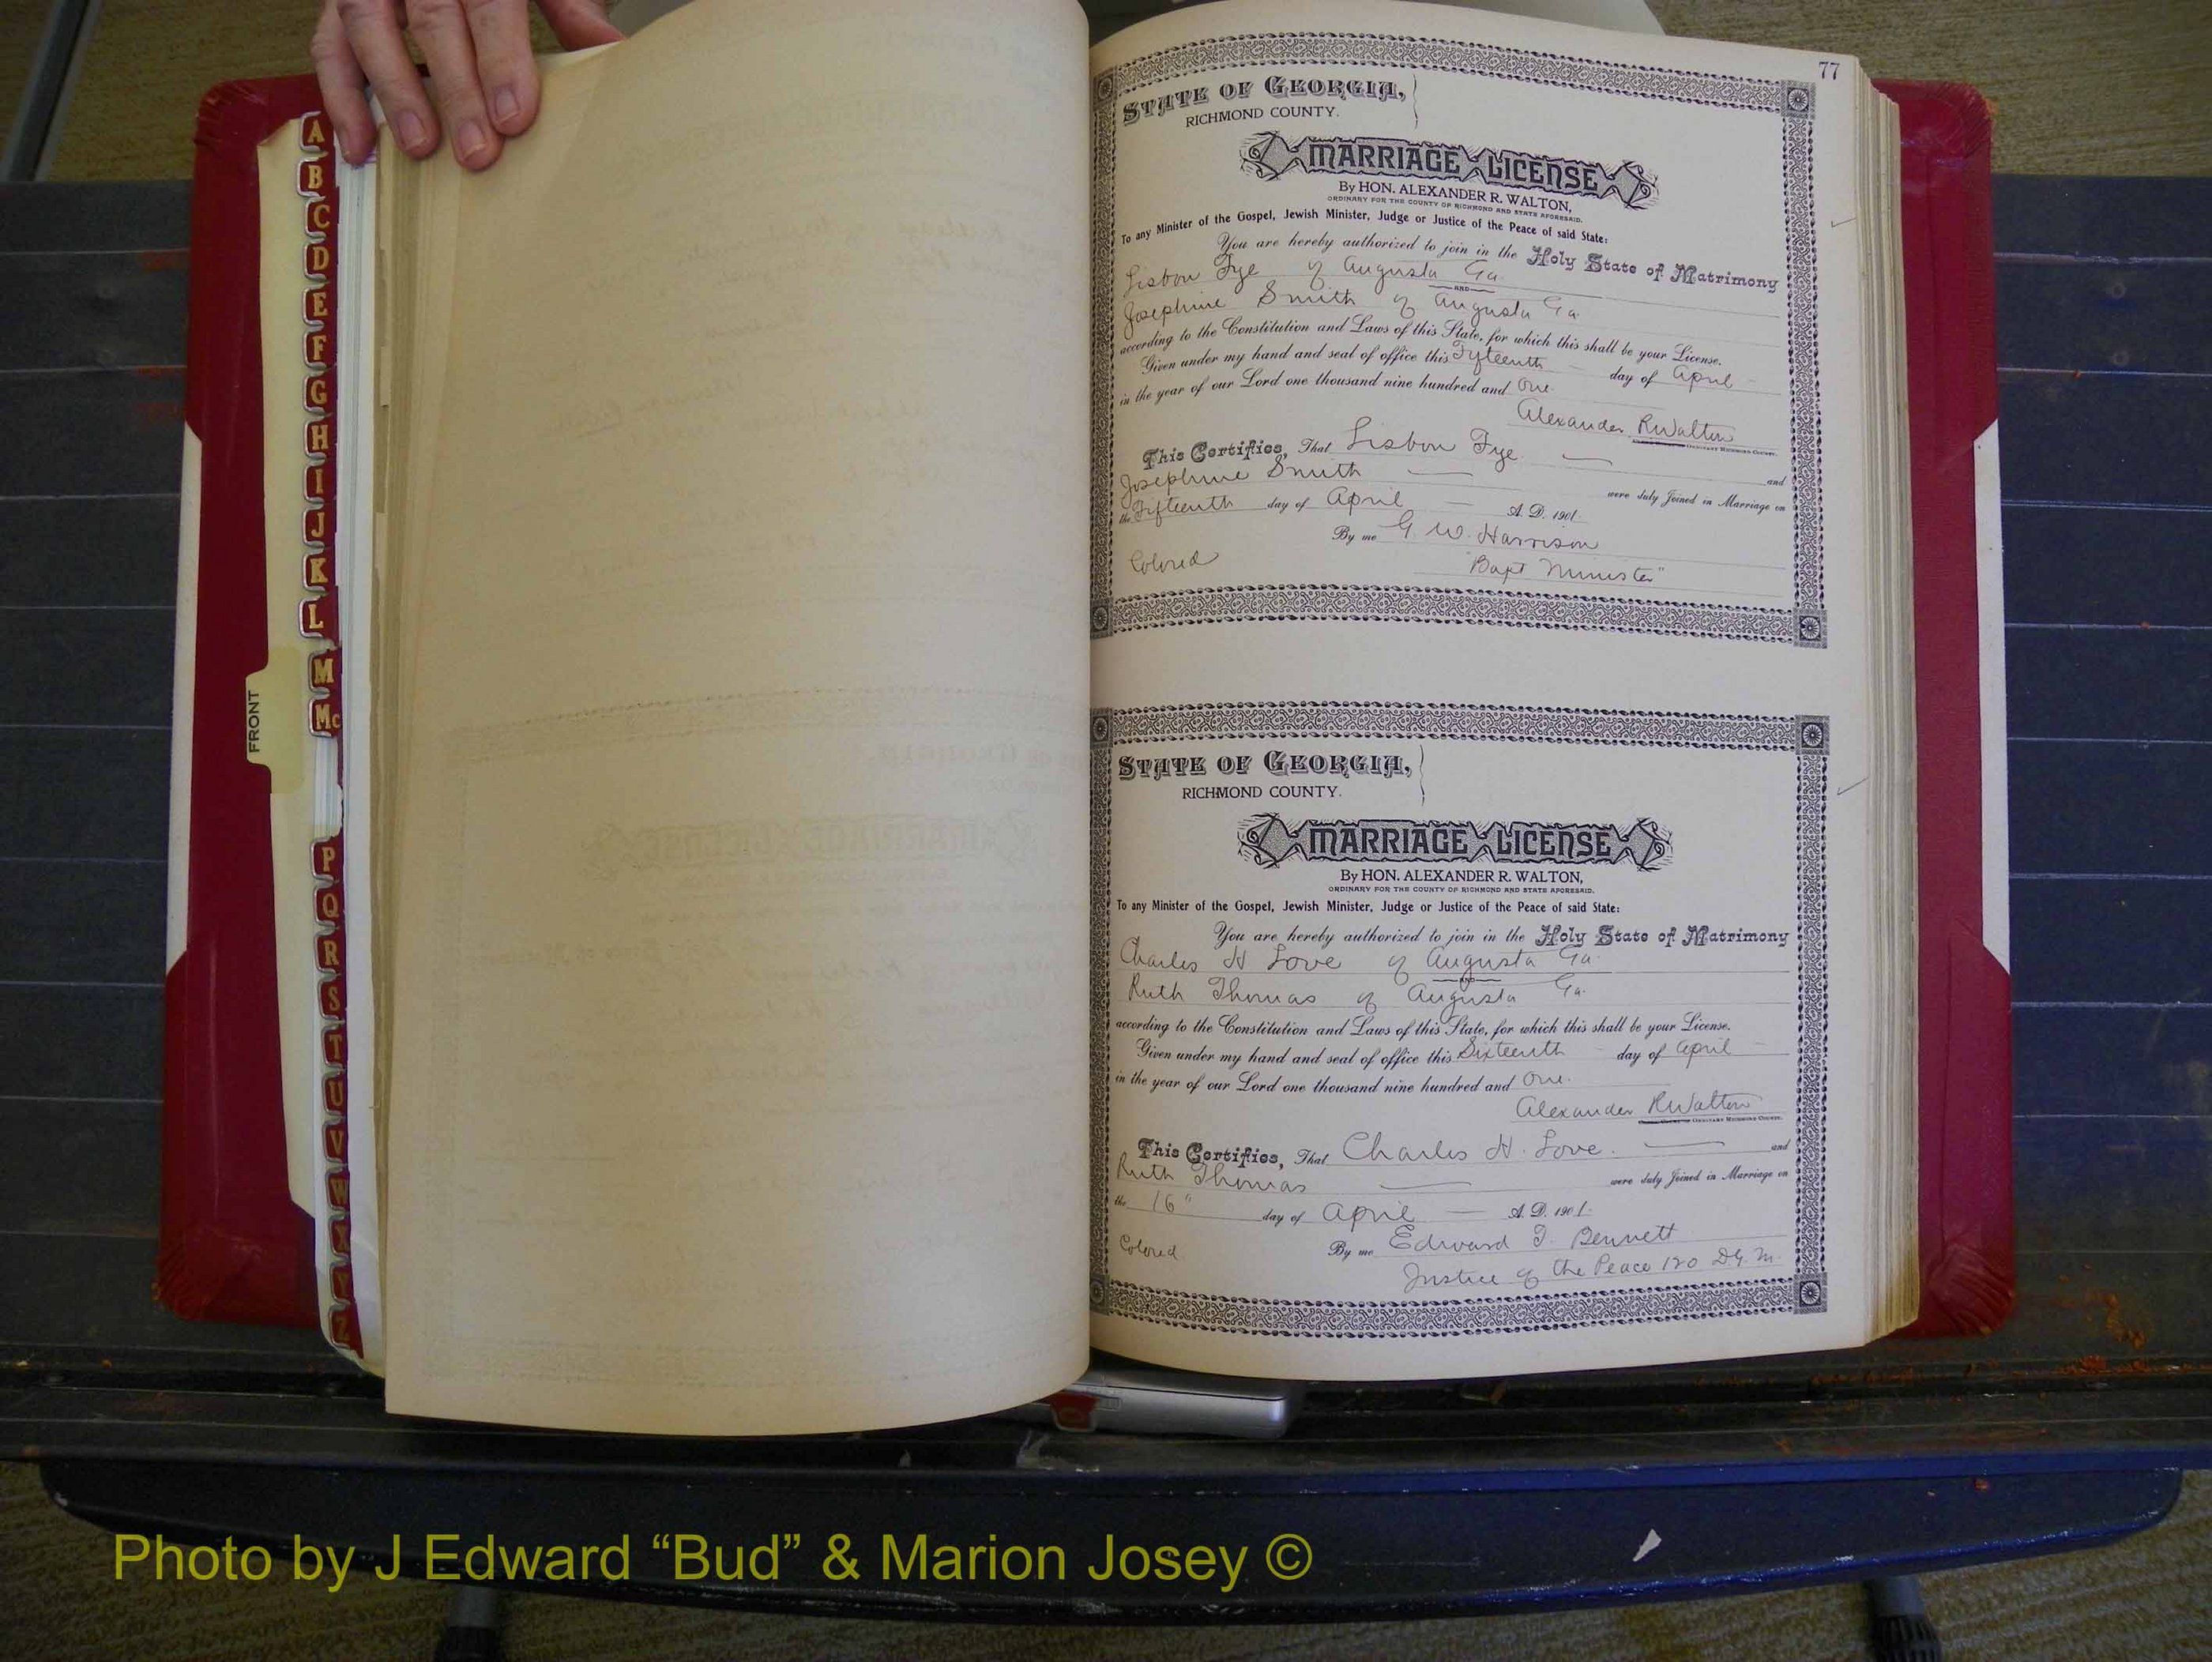 A
B
C
D
E
F
G
H
I
J
K
L
M
Mc
P
Q
R
S
T
U
V
W
X
Y
Z
FRONT
77
STATE OF GEORGIA,
RICHMOND COUNTY.
MARRIAGE LICENSE
By HON. ALEXANDER R. WALTON,
ORDINARY FOR THE COUNTY OF RICHMOND AND STATE AFORESAID.
To any Minister of the Gospel, Jewish Minister, Judge or Justice of the Peace of said State:
You are hereby authorized to join in the Holy State of Matrimony
Lisbon Fye of Augusta Ga
AND
Josephine Smith of Augusta Ga.
according to the Constitution and Laws of this State, for which this shall be your License.
Given under my hand and seal of office this Fifteenth day of April
in the year of our Lord one thousand nine hundred and One
Alexander R Walton
ORDINARY RICHMOND COUNTY.
This Certifies, That Lisbon Fye and
Josephine Smith were duly Joined in Marriage on
the Fifteenth day of April A. D. 1901
By me G. W. Harrison
Colored "Bapt Minister"
STATE OF GEORGIA,
RICHMOND COUNTY.
MARRIAGE LICENSE
By HON. ALEXANDER R. WALTON,
ORDINARY FOR THE COUNTY OF RICHMOND AND STATE AFORESAID.
To any Minister of the Gospel, Jewish Minister, Judge or Justice of the Peace of said State:
You are hereby authorized to join in the Holy State of Matrimony
Charles H Love of Augusta Ga.
Ruth Thomas of Augusta Ga.
according to the Constitution and Laws of this State, for which this shall be your License.
Given under my hand and seal of office this Sixteenth day of April
in the year of our Lord one thousand nine hundred and One.
Alexander R Walton
ORDINARY RICHMOND COUNTY.
This Certifies, That Charles H. Love. and
Ruth Thomas were duly Joined in Marriage on
the 16" day of April A. D. 1901.
Colored By me Edward T. Bennett
Justice of the Peace 120 D. G. M.
Photo by J Edward “Bud” & Marion Josey ©